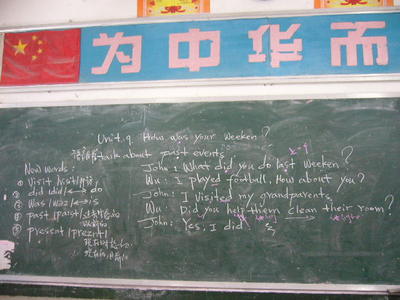 为中华而
Unit.9 How was your weeken?
talk about past events
New words:
① Visit /visit/
② did /did/ ← do
③ Was /wɔz/ ← is
④ past /pa:st/
⑤ present /preznt/
John: What did you do last weeken?
Wu: I played football. How about you?
John: I visited my grandparents.
Wu: Did you help them clean their room?
John: Yes, I did.